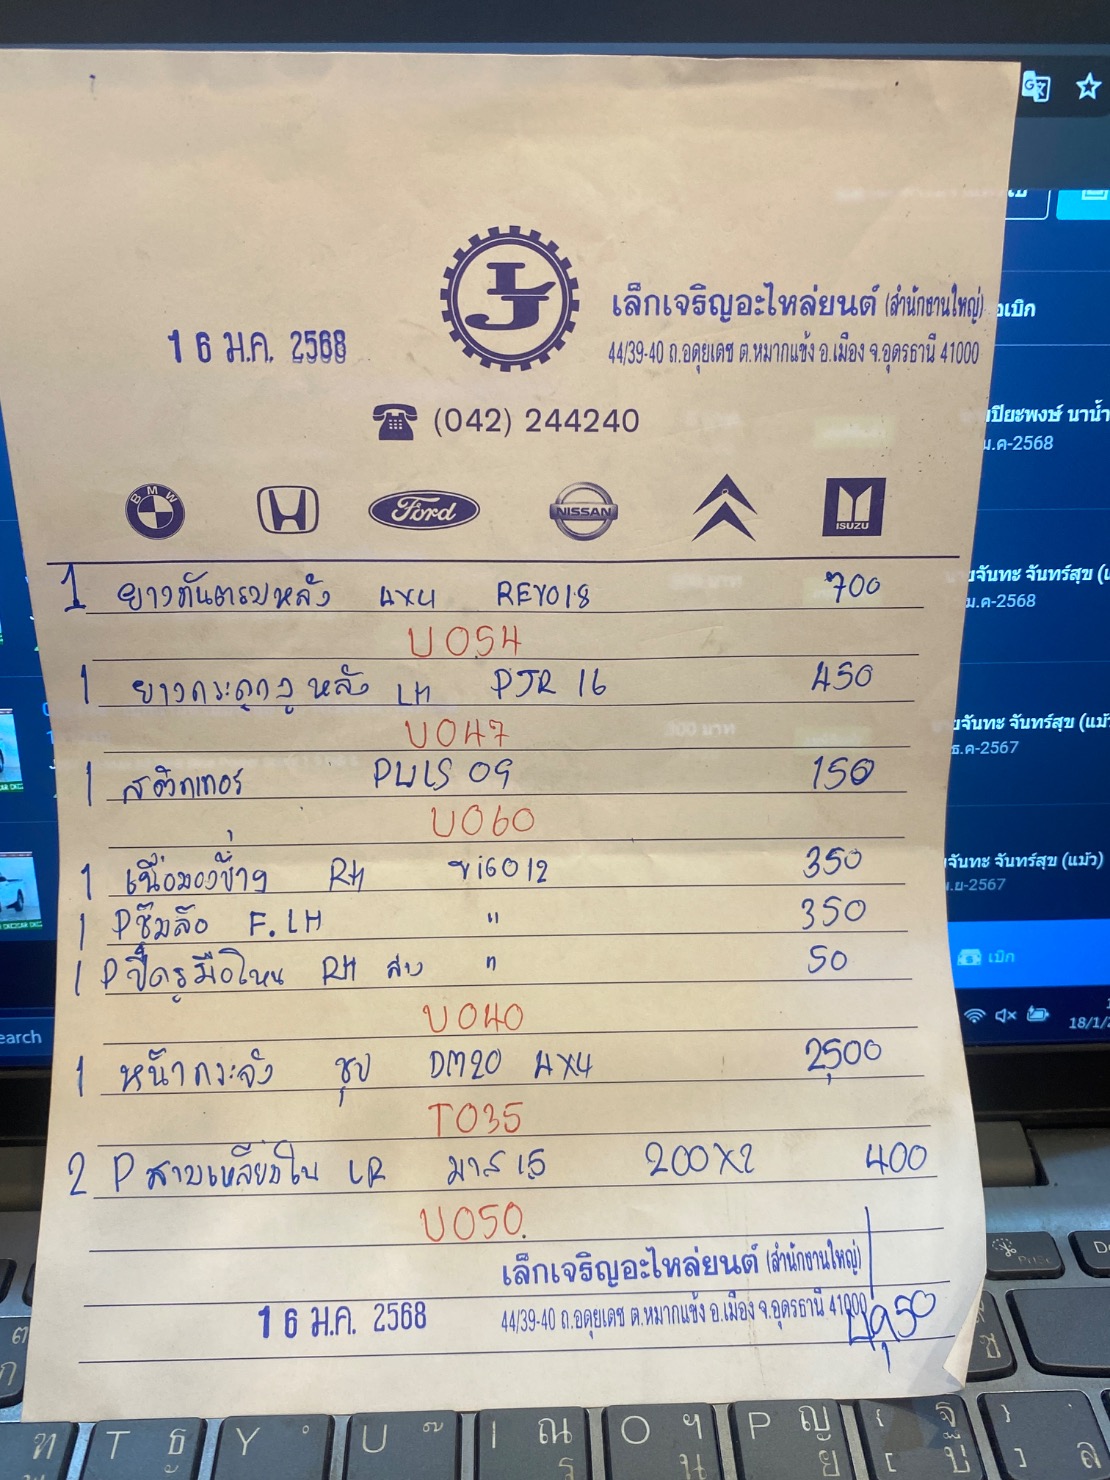 เล็กเจริญอะไหล่ยนต์ (สำนักงานใหญ่)
16 ม.ค. 2568
44/39-40 ถ.อดุยเดช ต.หมากแข้ง อ.เมือง จ.อุดรธานี 41000
(042) 244240
BMW
Ford
NISSAN
ISUZU
1 ยางกันตรบหลัง 4x4 REVO18 700
U054
1 ยางกระดูกงูหลัง LH 16 450
U047
1 สติกเกอร์ 09 150
U060
1 RH 6012 350
1 Pซุ้มล้อ F.LH " 350
1 Pปิดรูมือโหน RH " 50
U040
1 หน้ากระจัง ชุบ DM20 4x4 2,500
T035
2 P LR 15 200x2 400
U050
เล็กเจริญอะไหล่ยนต์ (สำนักงานใหญ่)
16 ม.ค. 2568
44/39-40 ถ.อดุยเดช ต.หมากแข้ง อ.เมือง จ.อุดรธานี 41000
4,950
อเบิก
ปิยะพงษ์ นาน้ำ
ม.ค-2568
จันทะ จันทร์สุข
ม.ค-2568
จันทะ จันทร์สุข (แม้ว
ธ.ค-2567
จันทะ จันทร์สุข (แม้ว)
.ย-2567
เบิก
earch
18/1/2
T ธ
Y
U
I ณ ร
O ฯ น
P ญ ย